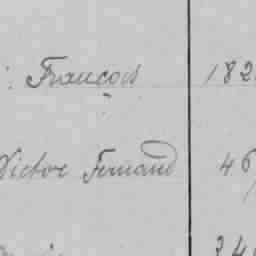 François 182
Victor Fernand 46